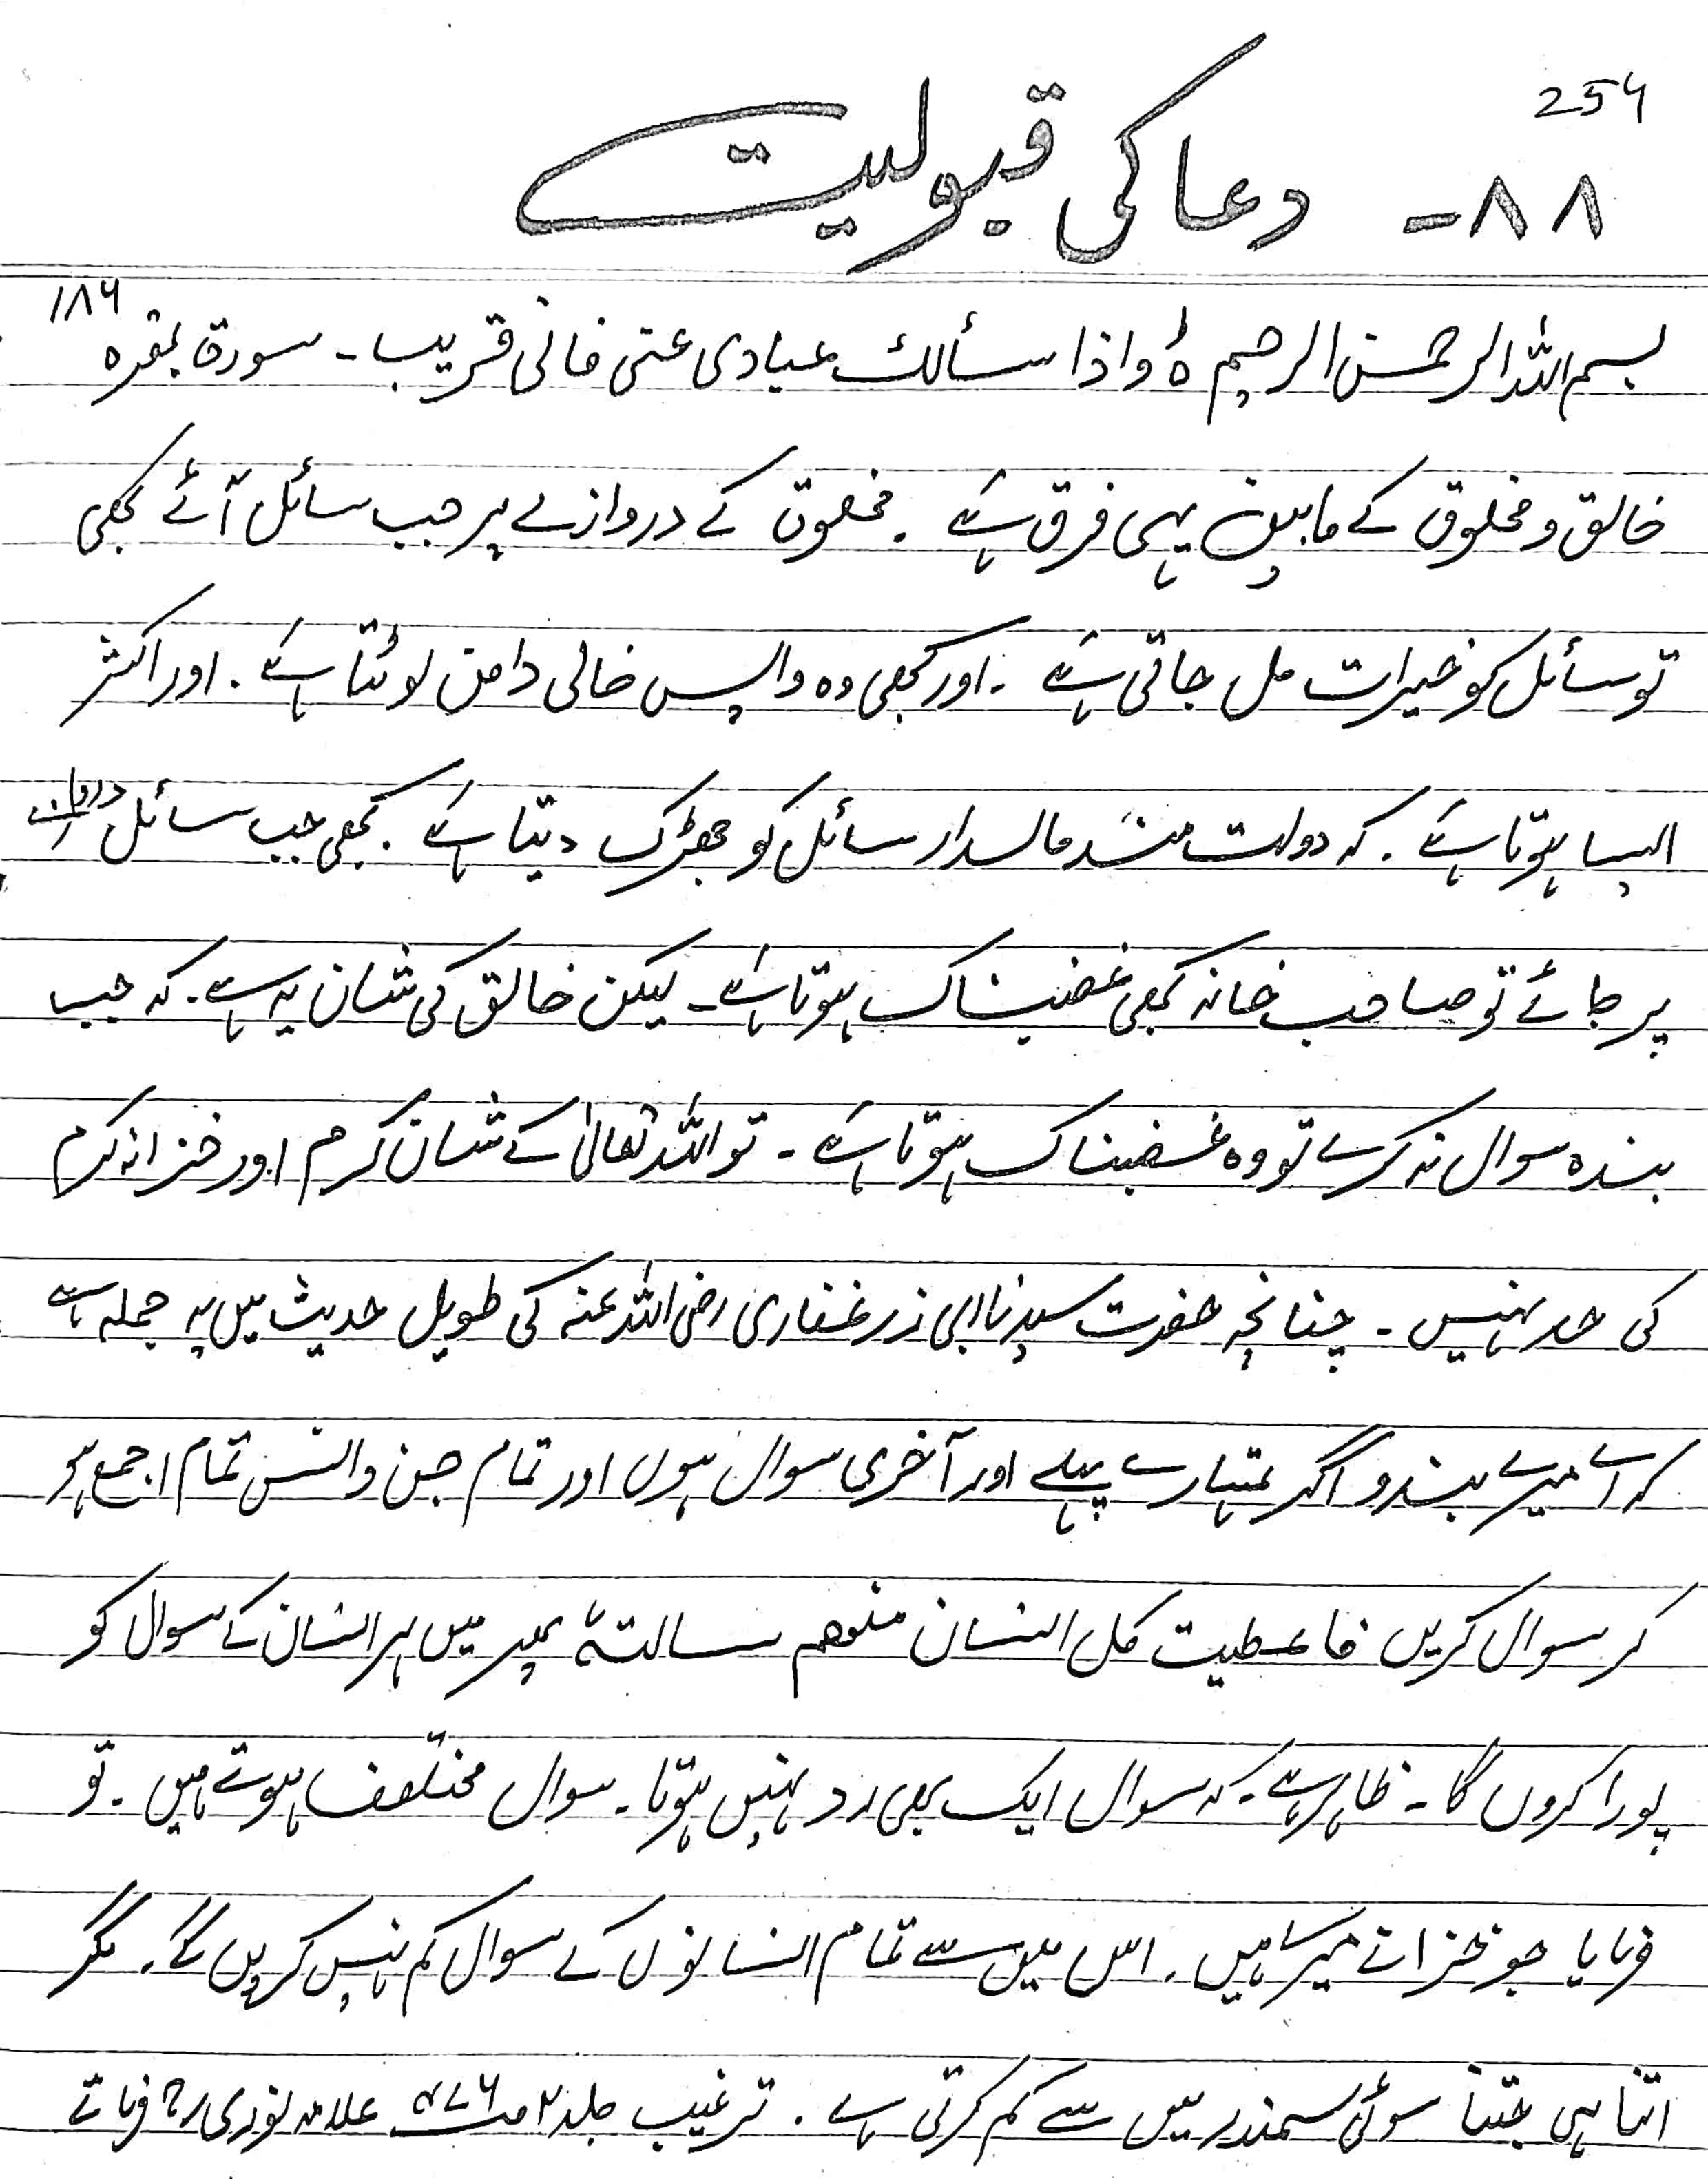 254
۸۸- دعا کی قبولیت
۱۸۶
بسم اللہ الرحمٰن الرحیم ہ واذا سألك عبادی عنی فانی قریب - سورۃ بقرہ
خالق و مخلوق کے مابین یہی فرق ہے ۔ مخلوق کے دروازے پر جب سائل آئے کبھی
تو سائل کو خیرات مل جاتی ہے ۔ اور کبھی وہ واپس خالی دامن لوٹتا ہے ۔ اور اکثر
ایسا ہوتا ہے ۔ کہ دولت مند مالدار سائل کو جھڑک دیتا ہے ۔ کبھی جب سائل دروازے
پر جائے تو صاحب خانہ کبھی غضبناک ہوتا ہے ۔ لیکن خالق کی شان یہ ہے ۔ کہ جب
بندہ سوال نہ کرے تو وہ غضبناک ہوتا ہے ۔ تو اللہ تعالیٰ کے شان کرم اور خزانہ کرم
کی حد نہیں ۔ چنانچہ حضرت سیدنا ابی زر غفاری رضی اللہ عنہ کی طویل حدیث میں یہ جملہ ہے
کہ اے میرے بندو اگر تمہارے پہلے اور آخری سوال ہوں اور تمام جن و انس تمام اجمع ہو
کر سوال کریں فاعطیت کل انسان منھم سالتہٗ پھر میں ہر انسان کے سوال کو
پورا کروں گا ۔ ظاہر ہے ۔ کہ سوال ایک بھی رد نہیں ہوتا ۔ سوال مختلف ہوتے ہیں ۔ تو
فرمایا جو خزانے میرے ہیں ۔ اس میں سے تمام انسانوں کے سوال کم نہیں کریں گے ۔ مگر
اتنا ہی جتنا سوئی سمندر میں سے کم کرتی ہے ۔ ترغیب جلد ۲ علامہ نووی رح فرماتے